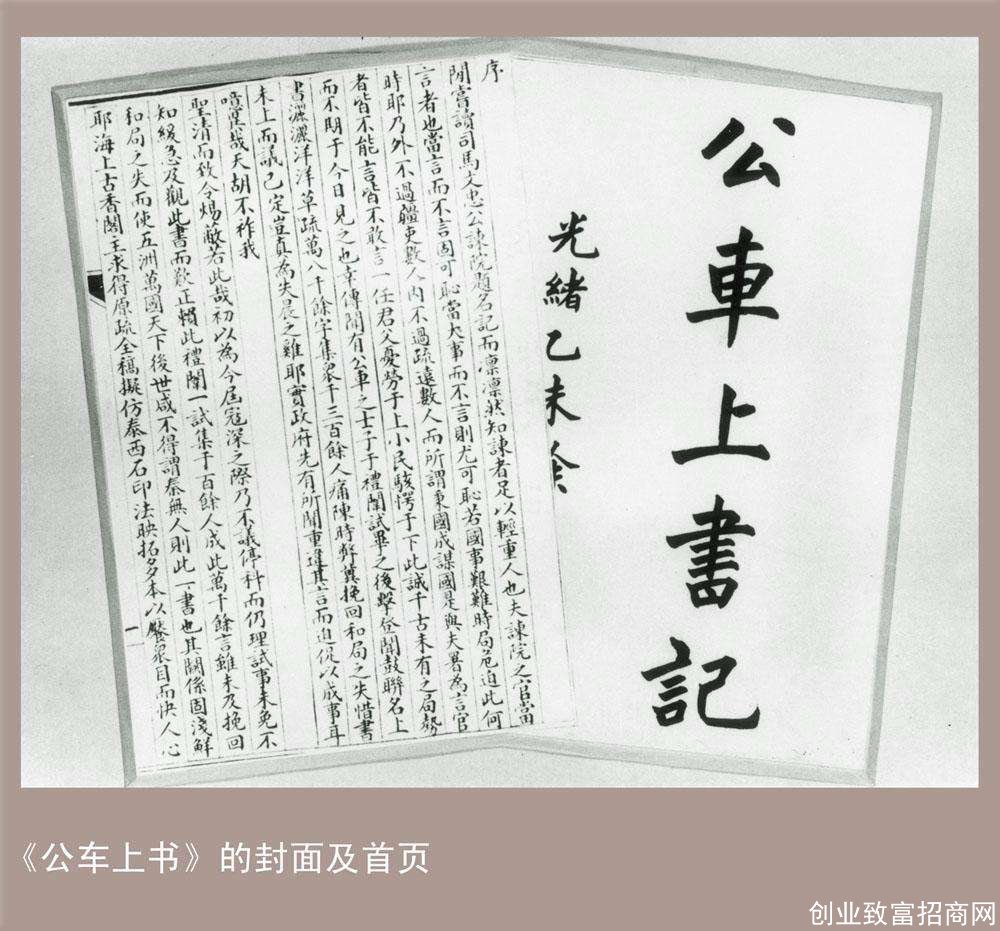 公車上書記
光緒乙未
序
閒嘗讀司馬文忠公諫院題名記而凜凜然知諫者足以輕重人也夫諫院之官當
言者也當言而不言固可恥當大事而不言則尤可恥若國事艱難時局危迫此何
時耶乃外不過疆吏數人內不過疏遠數人而所謂秉國成謀國是與夫署為言官
者皆不能言皆不敢言一任君人憂勞于上小民駭愕于下此誠千古未有之局勢
而不期于今日見之也幸傳聞有公車之士子于禮闈試畢之後擊登聞鼓聯名上
書灑灑洋洋草疏萬八千餘字集眾千三百餘人痛陳時弊冀挽回和局之失惜書
未上而議已定豈真為失晨之雞耶實政府先有所聞重違其言而迫促以成事耳
噫哉天胡不祚我
聖清而致令煬蔽若此哉初以為今屆寇深之際乃不議停科而仍理試事未免不
知緩急及觀此書而歎正賴此禮闈一試集千百餘人成此萬千餘言雖未及挽回
和局之失而使五洲萬國天下後世咸不得謂秦無人則此一書也其關係固淺鮮
耶海上古香閣主求得原疏全稿擬仿泰西石印法映拓多本以饜眾目而快人心
一
《公车上书》的封面及首页
创业致富招商网